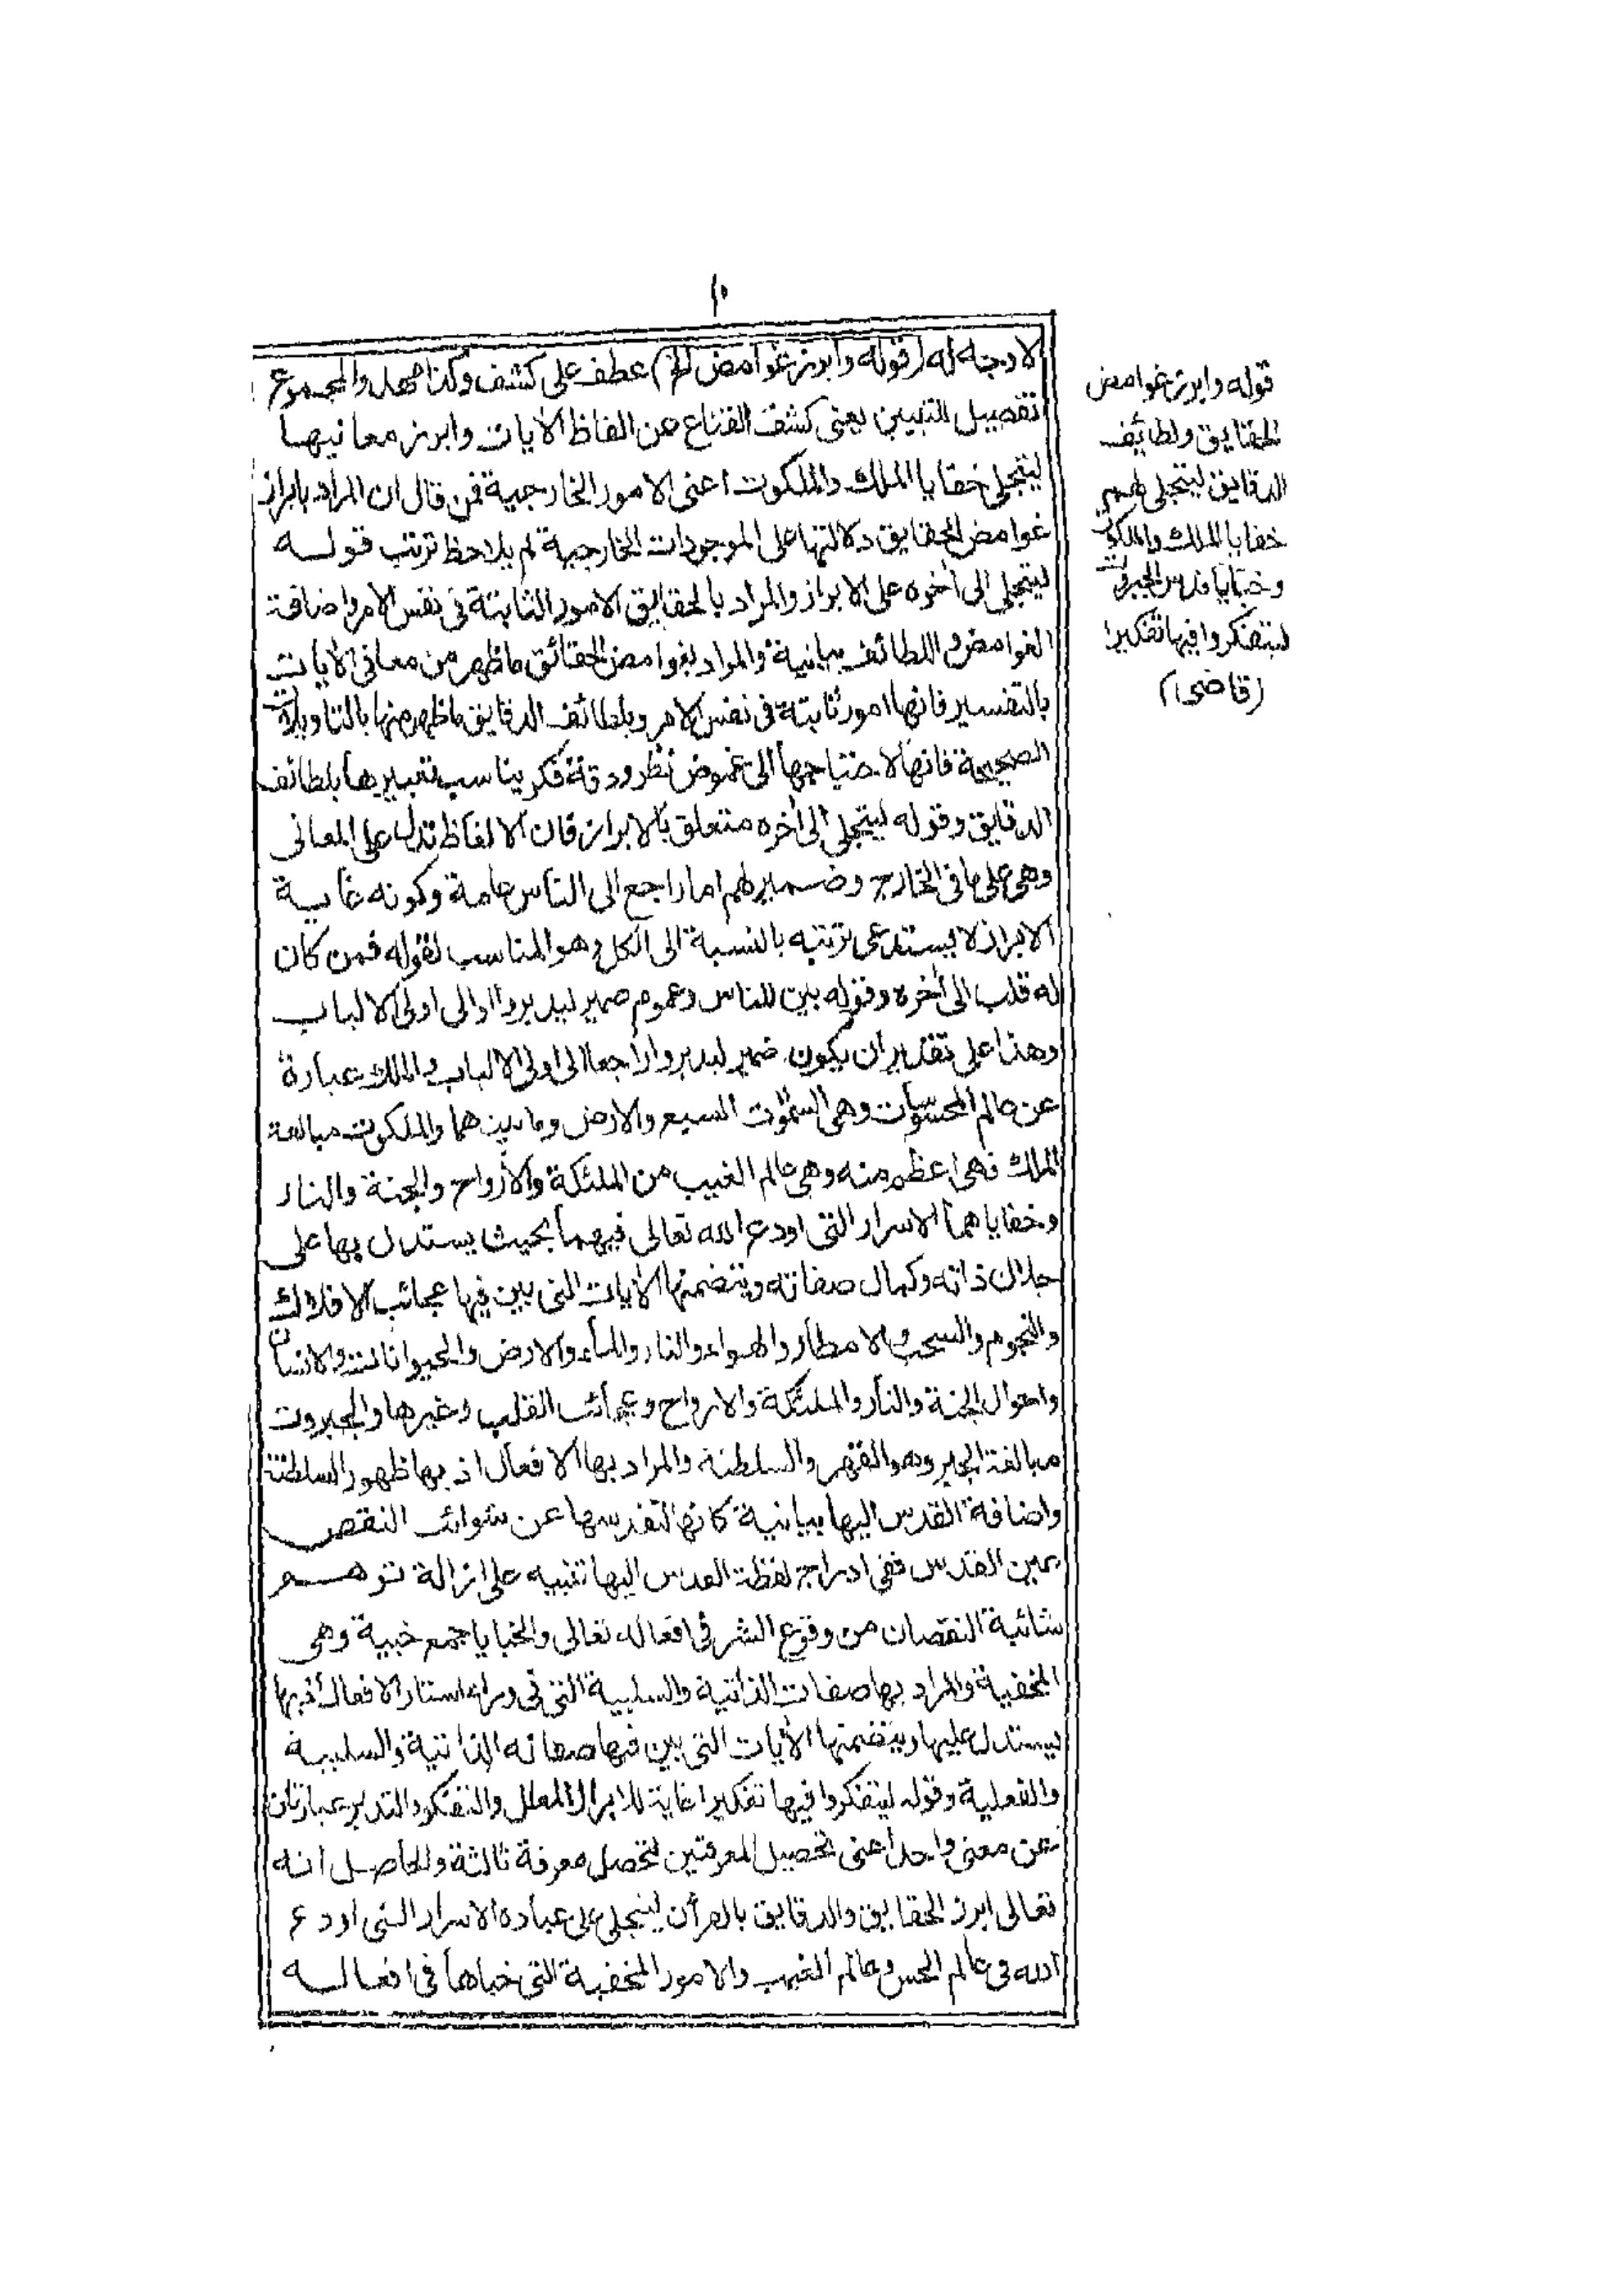 ١٠
لا وجه له (قوله وابرز غوامض الخ) عطف على كشف وكذا مهل والمجموع
تفصيل للتبيين يعنى كشف القناع عن الفاظ الأيات وابرز معانيها
ليتجلى خفايا الملك والملكوت اعنى الامور الخارجية فمن قال ان المراد بابراز
غوامض الحقايق دلالتها على الموجودات الخارجية لم يلاحظ ترتب قوله
ليتجلى الى أخره على الابراز والمراد بالحقايق الامور الثابتة فى نفس الامر واضافة
الغوامض واللطائف بيانية والمراد بغوامض الحقائق ماظهر من معانى الأيات
بالتفسير فانها امور ثابتة فى نفس الامر وبلطائف الدقايق ماظهر منها بالتاويلات
الصحيحة فانها لاحتياجها الى غموض نظر ودقة فكر يناسب تعبيرها بلطائف
الدقايق وقوله ليتجلى الى أخره متعلق بالابراز فان الالفاظ تدل على المعانى
وهى على ما فى الخارج وضمير لهم اما راجع الى الناس عامة وكونه غاية
الابراز لا يستدعى ترتبه بالنسبة الى الكل وهو المناسب لقوله فمن كان
له قلب الى أخره وقوله بين للناس وعموم ضمير ليدبروا او الى اولى الالباب
وهذا على تقدير ان يكون ضمير ليدبروا راجعا الى اولى الالباب والملك عبارة
عن عالم المحسوسات وهى السموات السبع والارض وما بينهما والملكوت مبالغة
الملك فهى اعظم منه وهى عالم الغيب من الملئكة والأرواح والجنة والنار
وخفاياهما الاسرار التى اودع الله تعالى فيهما بحيث يستدل بها على
جلال ذاته وكمال صفاته ويتضمنها الأيات التى بين فيها عجائب الافلاك
والنجوم والسحب والامطار والهواء والنار والماء والارض والحيوانات والانسان
واحوال الجنة والنار والملئكة والارواح وعجائب القلب وغيرها والجبروت
مبالغة الجبر وهو القهر والسلطنة والمراد بها الافعال اذ بها ظهور السلطنة
واضافة القدس اليها بيانية كانها لتقدسها عن شوائب النقص
عين القدس ففى ادراج لفظة القدس اليها تنبيه على ازالة توهم
شائبة النقصان من وقوع الشر فى افعاله تعالى والخبايا جمع خبية وهى
المخفية والمراد بها صفات الذاتية والسلبية التى فى وراء استار الافعال اذ بها
يستدل عليها ويتضمنها الأيات التى بين فيها صفاته الذاتية والسلبية
والفعلية وقوله ليتفكروا فيها تفكيرا غاية للابراز المعلل والتفكر والتدبر عبارتان
عن معنى واحد اعنى تحصيل المعرفتين لتحصل معرفة ثالثة والحاصل انه
تعالى ابرز الحقايق والدقايق بالقرأن ليتجلى على عباده الاسرار التى اودع
الله فى عالم الحس وعالم الغيب والامور المخفية التى خباها فى افعاله
قوله وابرز غوامض
الحقايق ولطائف
الدقايق ليتجلى لهم
خفايا الملك والملكوت
وخبايا قدس الجبروت
ليتفكروا فيها تفكيرا
(قاضى)